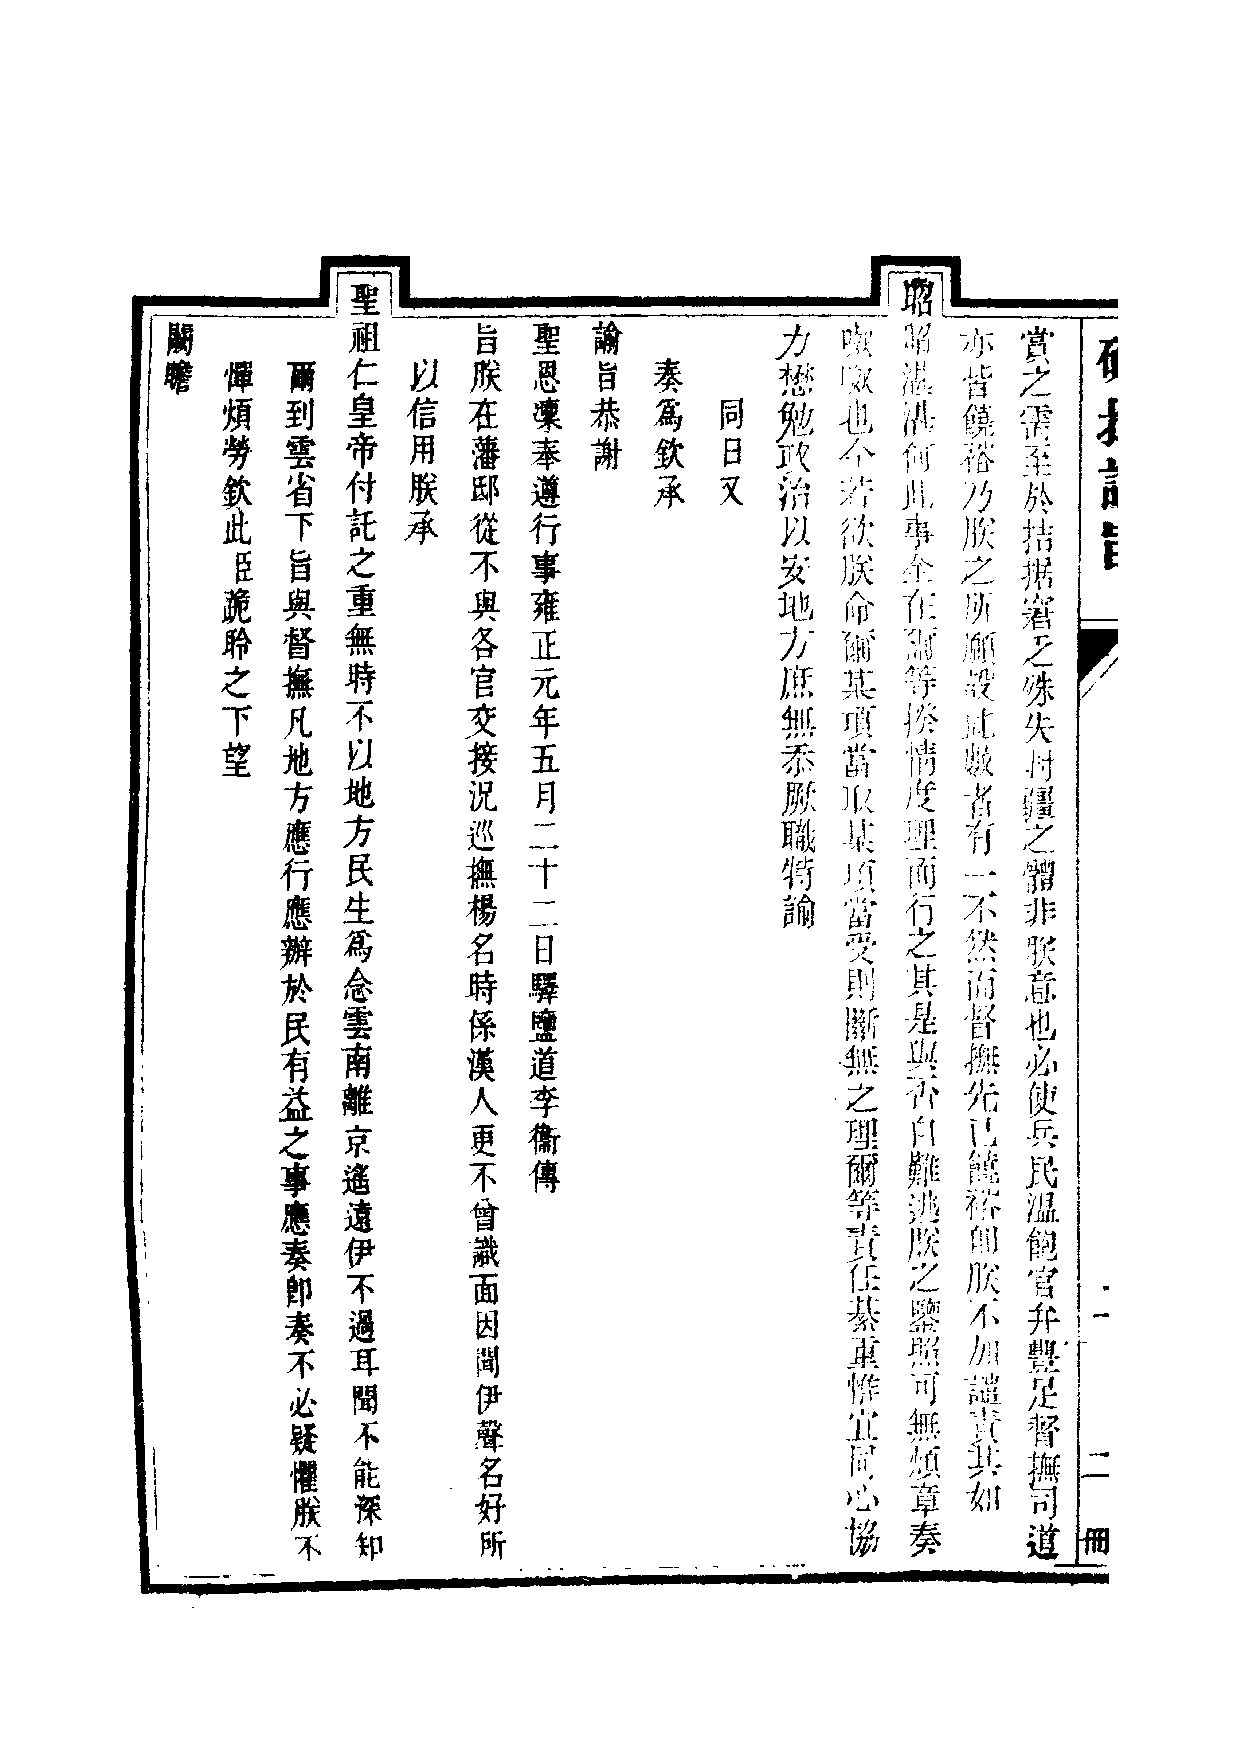 硃批諭旨
二冊
賞之需至於拮据窘乏殊失封疆之體非朕意也必使兵民溫飽官弁豐足督撫司道
亦皆饒裕乃朕之所願設此數者有一不然而督撫先已饒裕卽朕不加譴責其如
昭昭湛湛何此事全在爾等揆情度理而行之其是與否自難逃朕之鑒照可無煩章奏
嗷嗷也今若欲朕命爾某項當取某項當受則斷無之理爾等責任綦重惟宜同心協
力懋勉政治以安地方庶無忝厥職特諭
同日又
奏爲欽承
諭旨恭謝
聖恩凜奉遵行事雍正元年五月二十二日驛鹽道李衞傳
旨朕在藩邸從不與各官交接況巡撫楊名時係漢人更不曾識面因聞伊聲名好所
以信用朕承
聖祖仁皇帝付託之重無時不以地方民生爲念雲南離京遙遠伊不過耳聞不能深知
爾到雲省下旨與督撫凡地方應行應辦於民有益之事應奏卽奏不必疑懼朕不
憚煩勞欽此臣跪聆之下望
闕瞻